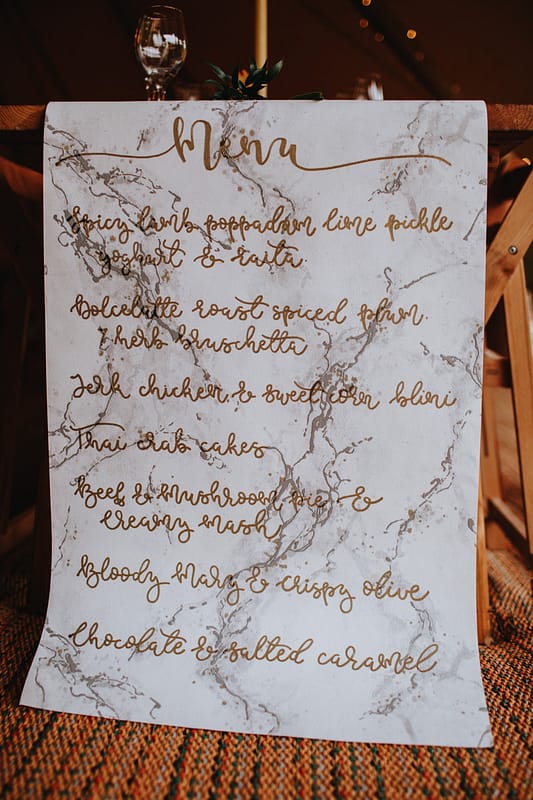 Menu
Spicy lamb poppadum lime pickle
yoghurt & raita.
Dolcelatte roast spiced plum.
7 herb bruschetta
Jerk chicken & sweetcorn blini
Thai crab cakes
Beef & mushroom pie &
creamy mash
Bloody Mary & crispy olive
Chocolate & salted caramel